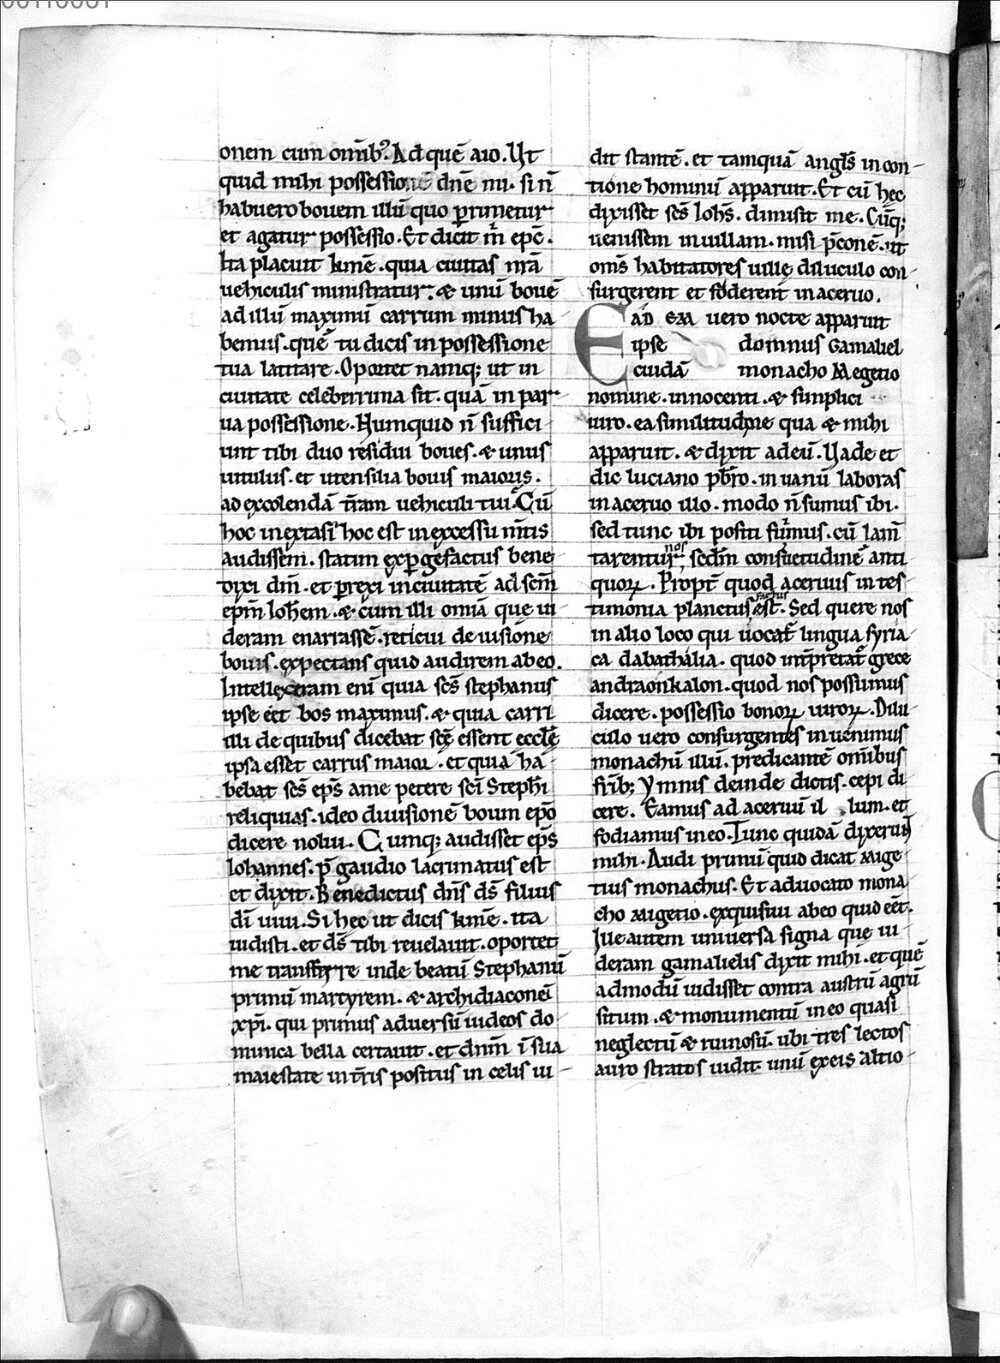 onem cum om̄ib᷒. Ad quē aio. Ut
quid mihi possessionē dn̄e mi. si n̄
habuero bouem illū quo p̱rimetur
et agatur possessio. Et dicit m̄ ep̄c.
Ita placuit kn̄ie. quia ciuitas n̄ra
uehiculis ministratur. & unū bouē
ad illū maximū carrum minus ha
bemus. quē tu dicis in possessione
tua latitare. Oportet namq; ut in
ciuitate celeberrima sit. quā in par
ua possessione. Numquid n̄ suffici
unt tibi duo residui boues. & unus
uitulus. et utensilia bouis maioris.
ad excolendā t̄ram uehiculi tui. Cū
hoc in extasi hoc est in excessu m̄tis
audissem. statim exp̱gefactus bene
dixi dm̄. et p̱rexi in ciuitatē ad sc̄m
ep̄m Ioh̄em. & cum illi omīa que ui
deram enarrassē. reticui de uisione
bouis. expectans quid audirem ab eo.
Intellexeram enī quia sc̄s stephanus
ipse eēt bos maximus. & quia carri
illi de quibus dicebat scē essent eccl̄ę
ipsa esset carrus maior. et quia ha
bebat sc̄s ep̄s a me petere sc̄i Steph̄i
reliquias. ideo diuisionē boum ep̄o
dicere nolui. Cumq; audisset ep̄s
Iohannes. p̄ gaudio lacrimatus est
et dixit. Benedictus dn̄s ds̄ filius
dī uiui. Si hec ut dicis kn̄ie. ita
uidisti. et ds̄ tibi reuelauit. oportet
me transferre inde beatū Stephanū
primū martyrem. & archidiaconē
xp̄i. qui primus aduersū iudeos do
minica bella certauit. et dn̄m ī sua
maiestate in t̄ris positus in celis ui
dit stantē. et tamquā angl̄s in con
tione hominū apparuit. Et cū hec
dixisset sc̄s Ioh̄s. dimisit me. Cūq;
uenissem in uillam. misi p̄conē. ut
om̄s habitatores uillę diluculo con
surgerent et foderent in aceruo.
EADEM uero nocte apparuit
ipse domnus Gamaliel
cuidā monacho Megetio
nomine. innocenti. & simplici
uiro. ea similitudine qua & mihi
apparuit. & dixit ad eū. Uade et
dic luciano pb̄ro. in uanū laboras
in aceruo illo. modo n̄ sumus ibi.
sed tunc ibi positi fuim̄us. cū lam̄
tarentur nos sedm̄ consuetudinē anti
quoꝝ. Propt̄ quod aceruus in tes
timonia planctus factus est. Sed quere nos
in alio loco qui uocat̄ lingua syria
ca dabathalia. quod int̄pretat̄ grece
andraonkalon. quod nos possumus
dicere. possessio bonoꝝ uiroꝝ. Dilu
culo uero consurgentes inuenimus
monachū illū. predicantē om̄ibus
frīb; Ymnis deinde dictis. cepi di
cere. Eamus ad aceruū il lum. et
fodiamus in eo. Tunc quidā dixerūt
mihi. Audi primū quid dicat mige
tius monachus. Et aduocato mona
cho migetio. exquisiui ab eo quid eēt.
Ille autem uniuersa signa que ui
deram gamalielis dixit mihi. et quē
admodū uidisset contra austrū agrū
situm. & monumentū in eo quasi
neglectū & ruinosū. ubi tres lectos
auro stratos uidit. unū ex eis altio